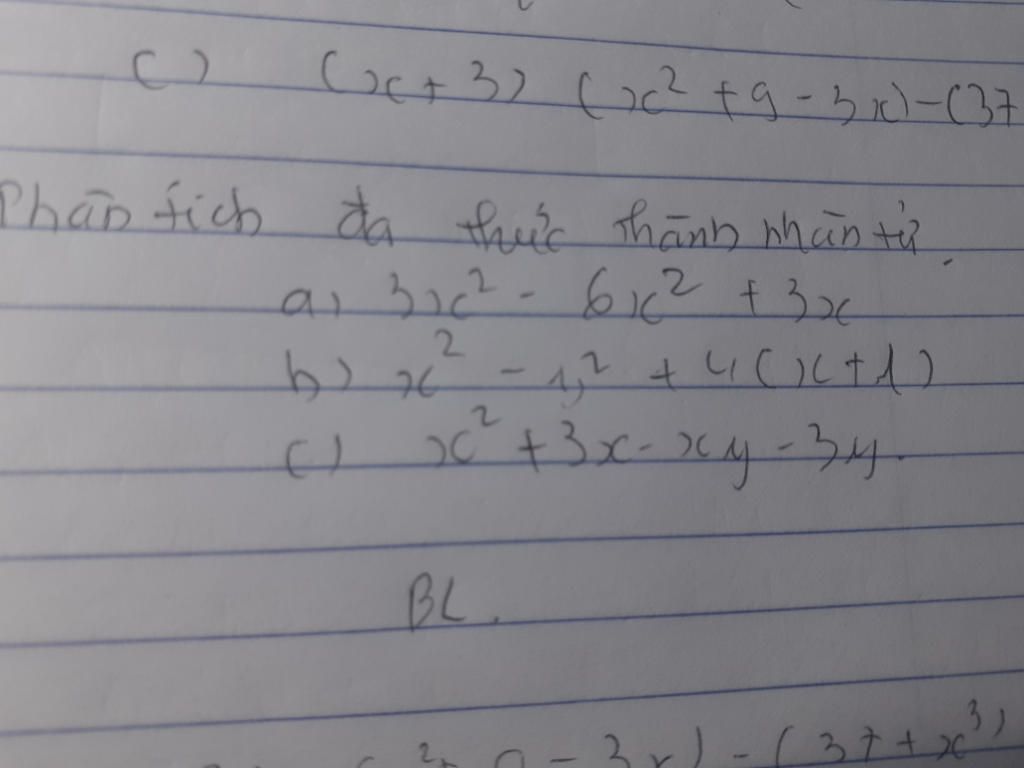 c) (x + 3) (x² + 9 - 3x) - (37
Phân tích đa thức thành nhân tử.
a) 3x² - 6x² + 3x
b) x² - y² + 4(x + 1)
c) x² + 3x - xy - 3y.
BL.
- 3x) - (37 + x³)